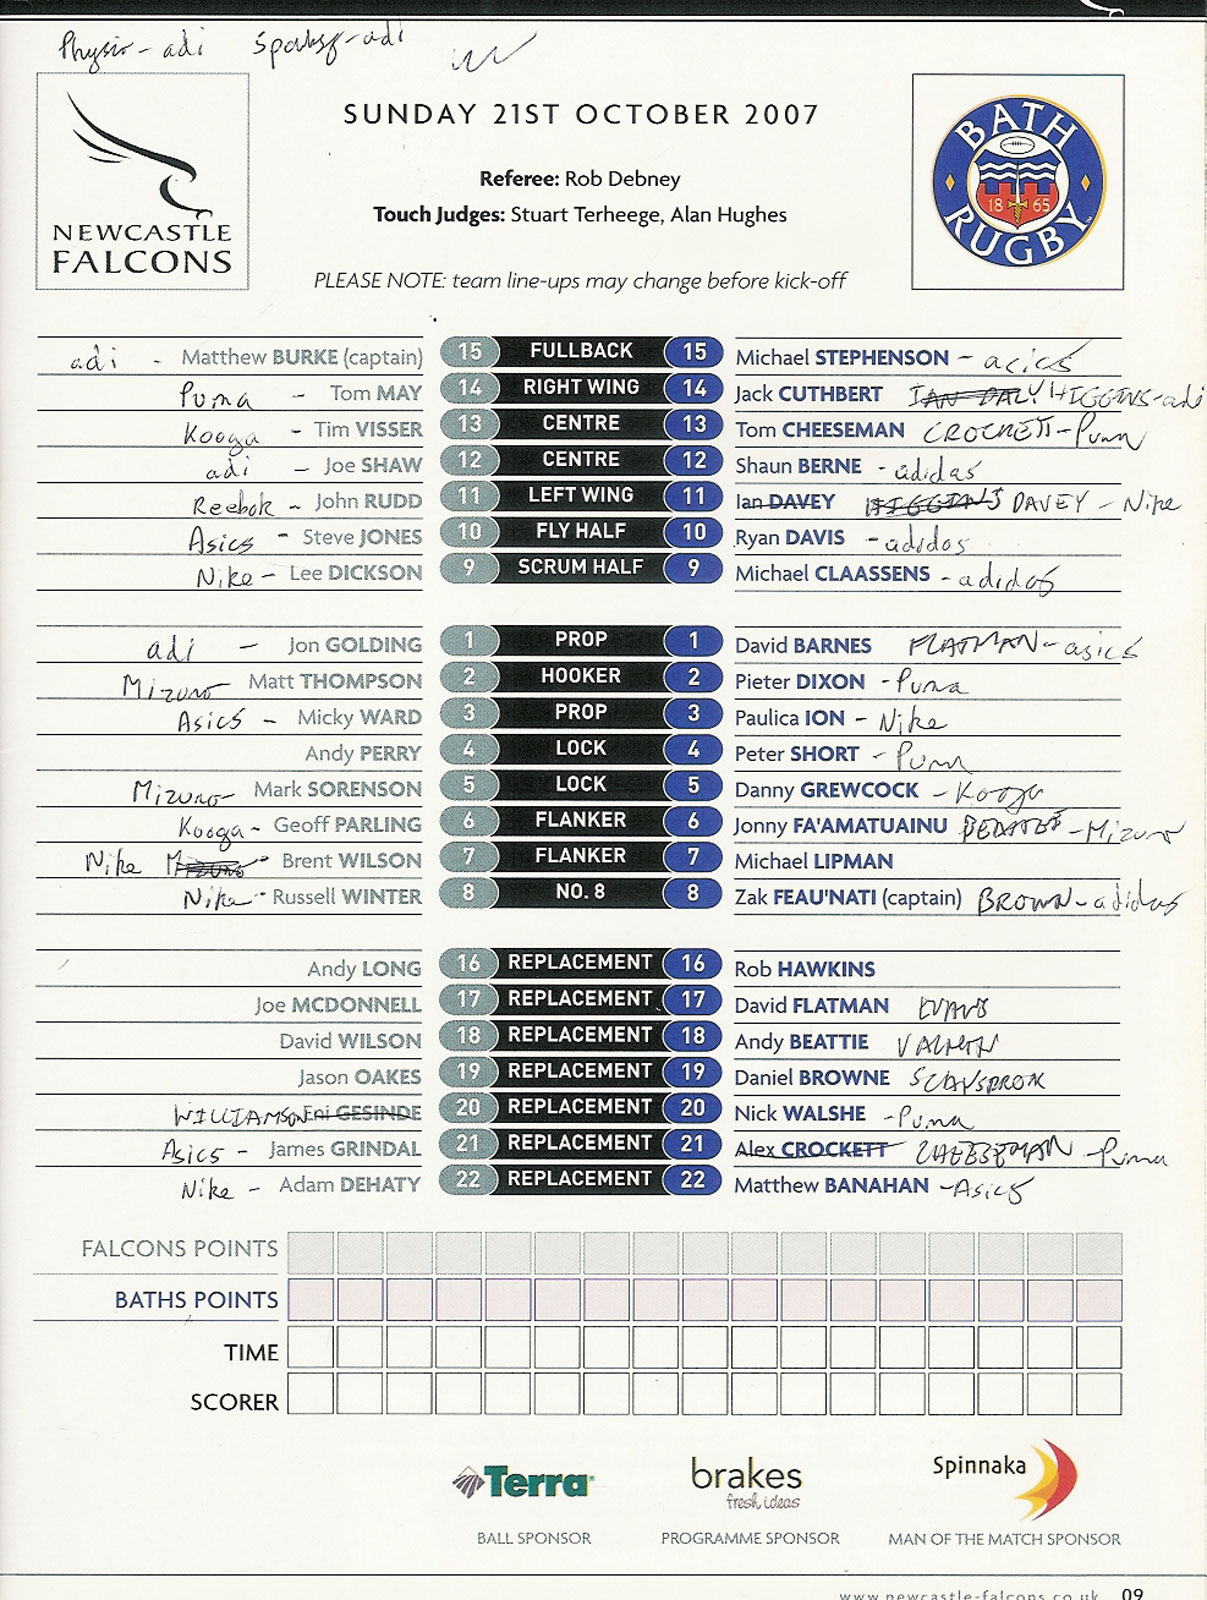 Physio - adi
NEWCASTLE
FALCONS
SUNDAY 21ST OCTOBER 2007
Referee: Rob Debney
Touch Judges: Stuart Terheege, Alan Hughes
PLEASE NOTE: team line-ups may change before kick-off
BATH
18 65
RUGBY
adi - Matthew BURKE (captain) 15 FULLBACK 15 Michael STEPHENSON - asics
Puma - Tom MAY 14 RIGHT WING 14 Jack CUTHBERT IAN DALY HIGGINS - adi
Kooga - Tim VISSER 13 CENTRE 13 Tom CHEESEMAN CROCKETT - Puma
adi - Joe SHAW 12 CENTRE 12 Shaun BERNE - adidas
Reebok - John RUDD 11 LEFT WING 11 Ian DAVEY HIGGINS DAVEY - Nike
Asics - Steve JONES 10 FLY HALF 10 Ryan DAVIS - adidas
Nike - Lee DICKSON 9 SCRUM HALF 9 Michael CLAASSENS - adidas
adi - Jon GOLDING 1 PROP 1 David BARNES FLATMAN - asics
Mizuno Matt THOMPSON 2 HOOKER 2 Pieter DIXON - Puma
Asics - Micky WARD 3 PROP 3 Paulica ION - Nike
Andy PERRY 4 LOCK 4 Peter SHORT - Puma
Mizuno - Mark SORENSON 5 LOCK 5 Danny GREWCOCK - Kooga
Kooga - Geoff PARLING 6 FLANKER 6 Jonny FA'AMATUAINU - Mizuno
Nike Mizuno - Brent WILSON 7 FLANKER 7 Michael LIPMAN
Nike - Russell WINTER 8 NO. 8 8 Zak FEAU'NATI (captain) BROWN - adidas
Andy LONG 16 REPLACEMENT 16 Rob HAWKINS
Joe MCDONNELL 17 REPLACEMENT 17 David FLATMAN
David WILSON 18 REPLACEMENT 18 Andy BEATTIE
Jason OAKES 19 REPLACEMENT 19 Daniel BROWNE
WILLIAMSON Eni GESINDE 20 REPLACEMENT 20 Nick WALSHE - Puma
Asics - James GRINDAL 21 REPLACEMENT 21 Alex CROCKETT CHEESEMAN - Puma
Nike - Adam DEHATY 22 REPLACEMENT 22 Matthew BANAHAN - Asics
FALCONS POINTS
BATHS POINTS
TIME
SCORER
Terra
BALL SPONSOR
brakes
fresh ideas
PROGRAMME SPONSOR
Spinnaka
MAN OF THE MATCH SPONSOR
www.newcastle-falcons.co.uk 09